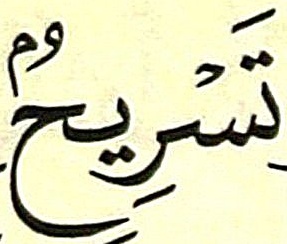 تَسْرِيحُۢ